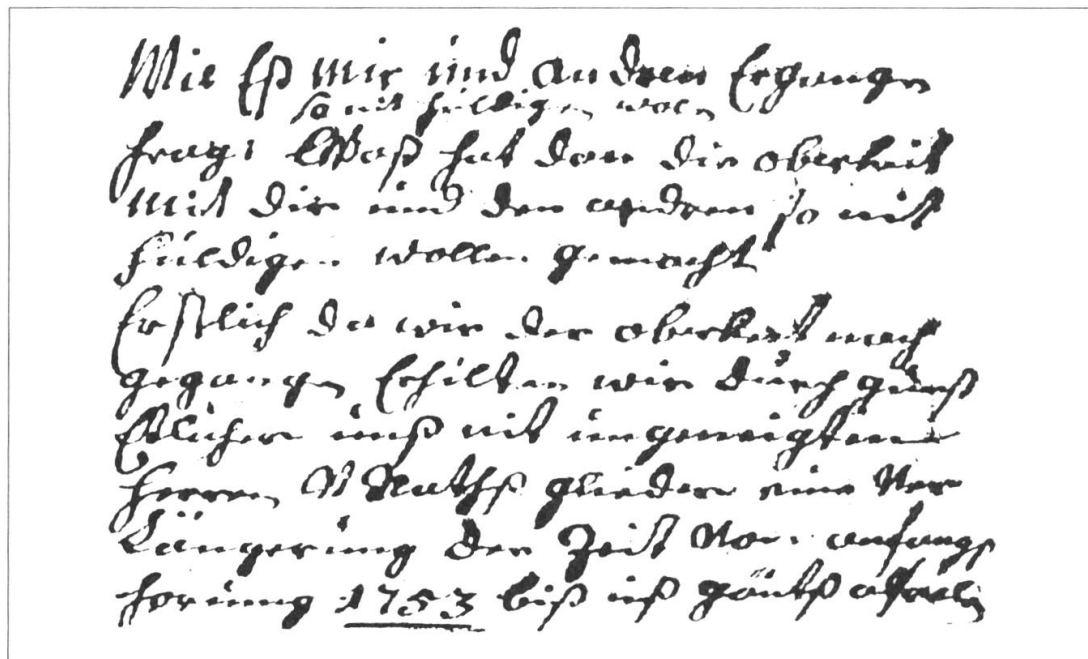 Wie Eß mir und andren Ergangen
so nit huldigen wolen
frag: Waß hat dan die oberkeit
mit dir und den andren so nit
huldigen wollen gemacht
Erstlich da wir der oberkeit nach
gegangen Erhilten wir durch gunst
Etlicher unß nit ungeneigten
herren Rathß glieder eine Ver
Längerung der Zeit Von anfangs
hornung 1753 biß uß